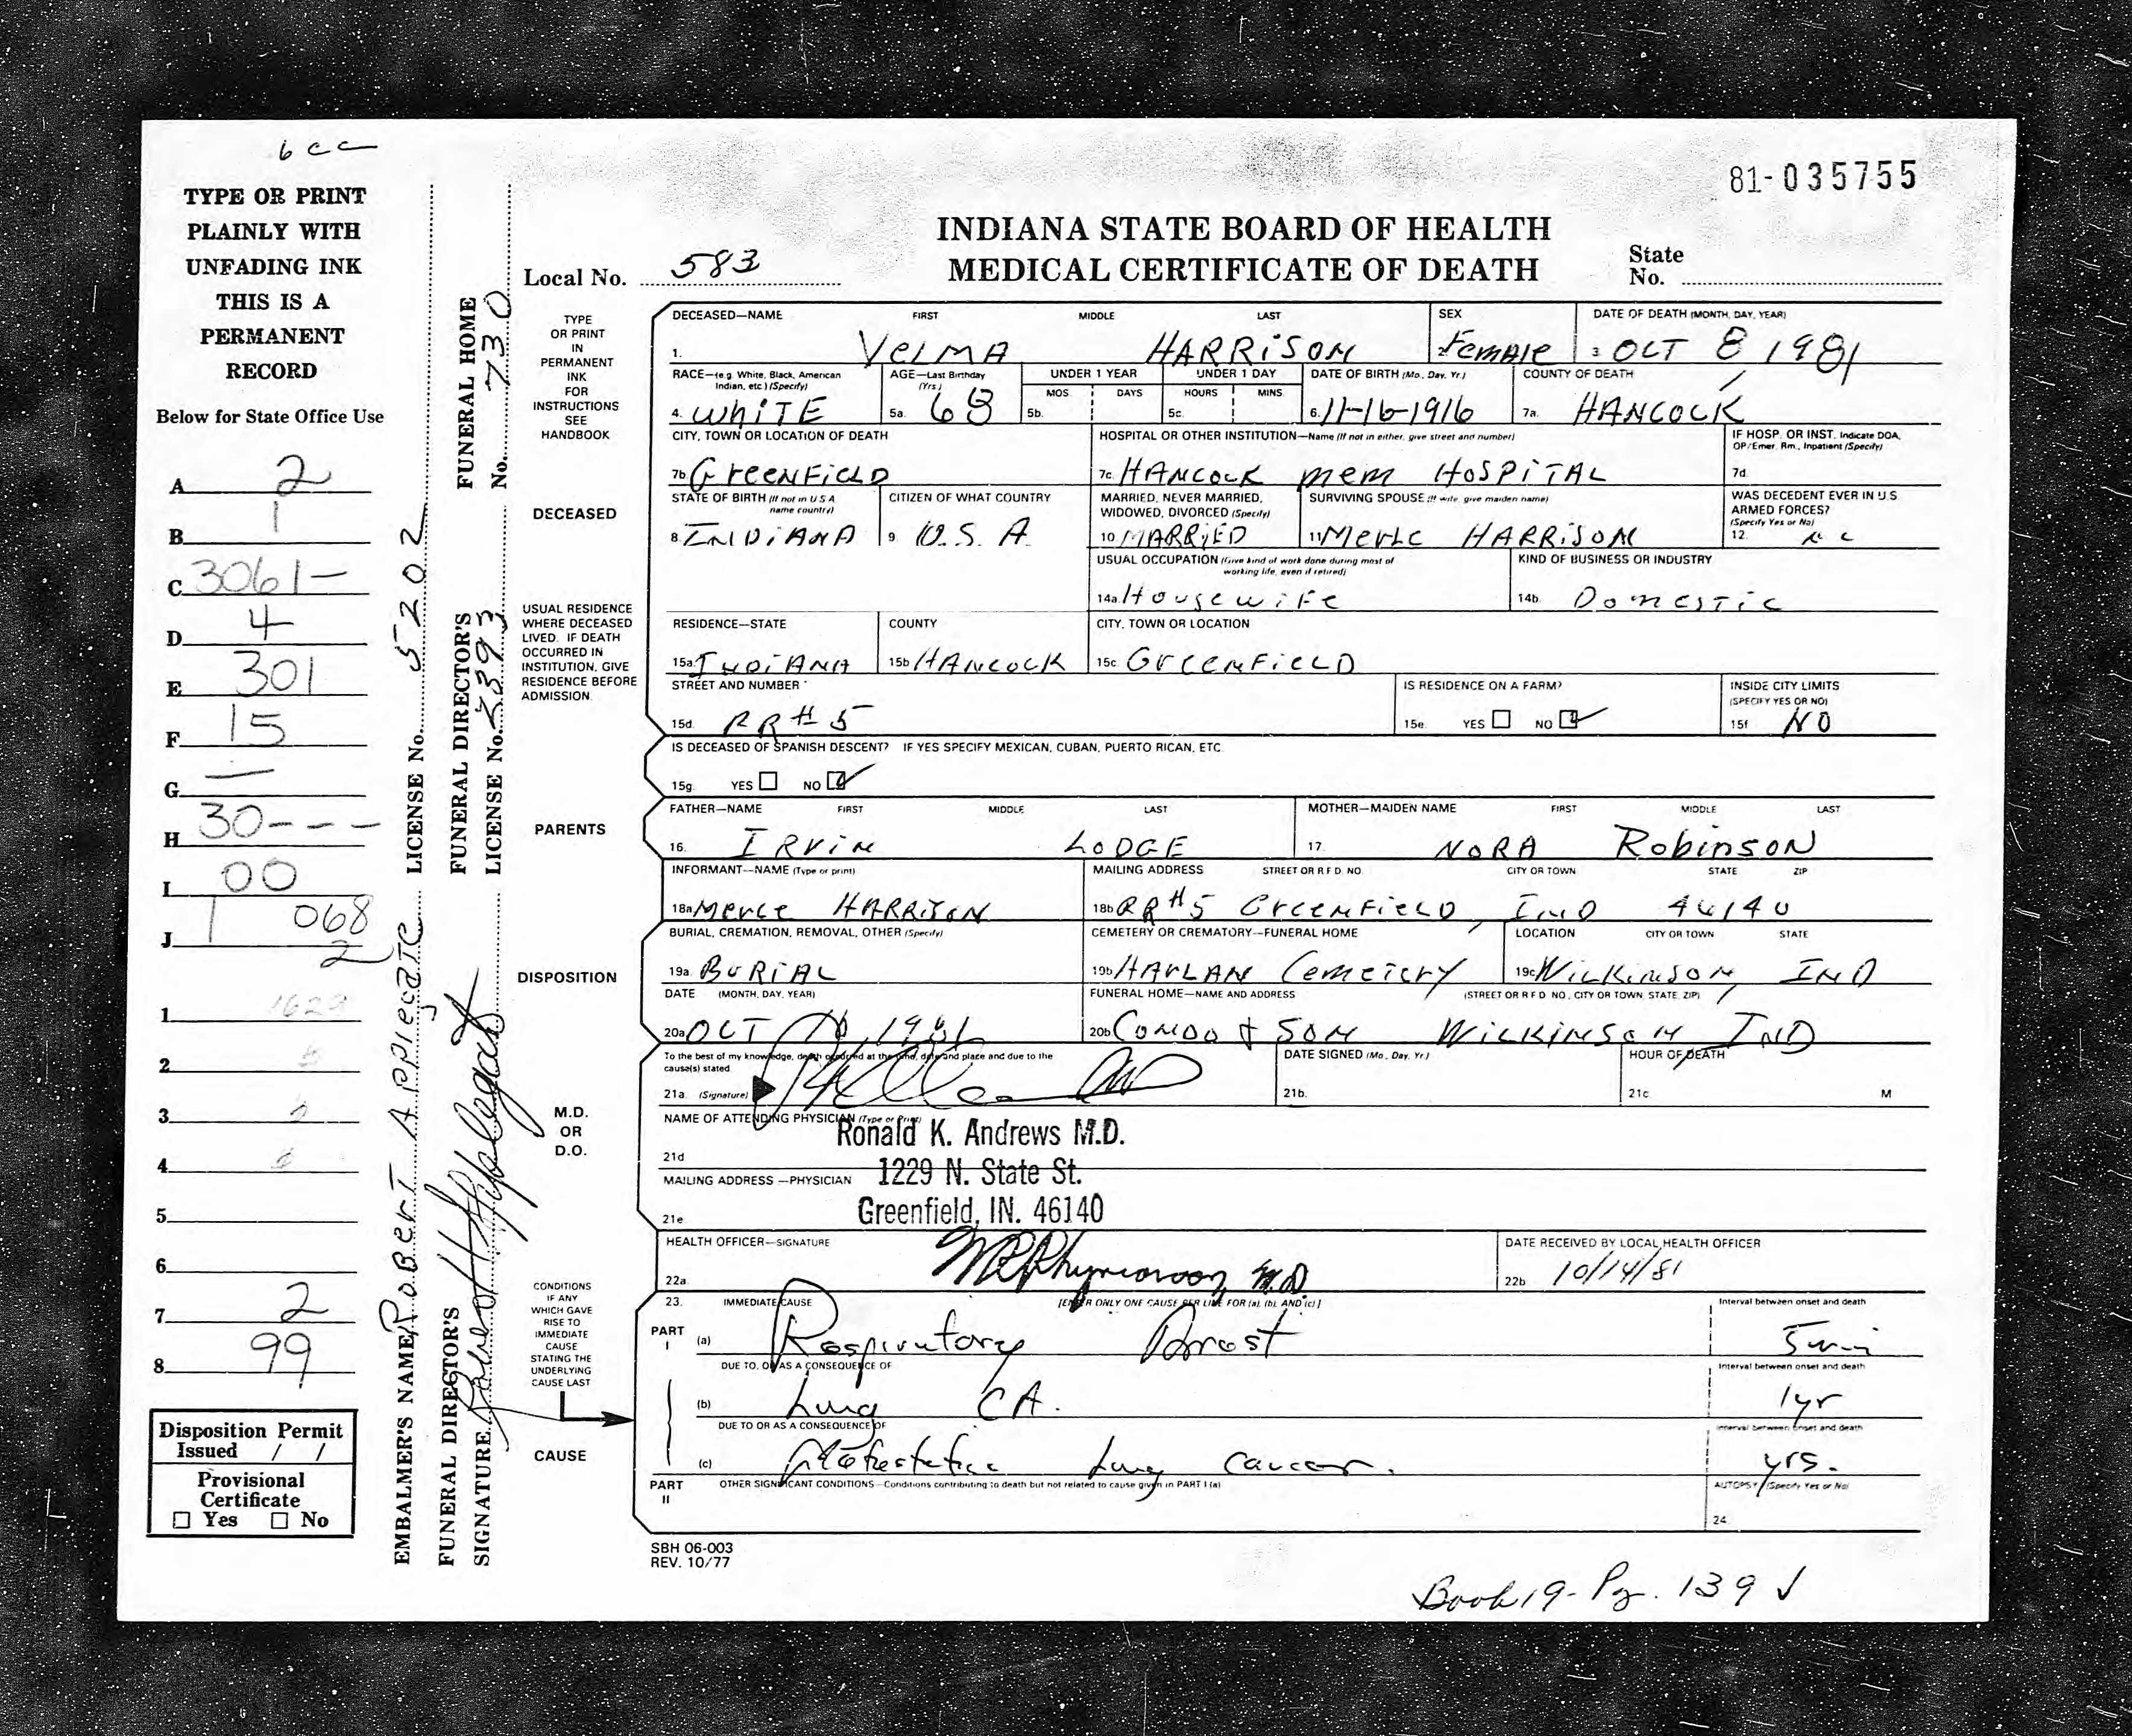 6 cc
81-035755
TYPE OR PRINT
PLAINLY WITH
UNFADING INK
THIS IS A
PERMANENT
RECORD
Below for State Office Use
A 2
B 1
C 3061-
D 4
E 301
F 15
G —
H 30---
I 00
J 1 068
2
1
2
3
4
5
6
7 2
8 99
Disposition Permit
Issued / /
Provisional
Certificate
☐ Yes ☐ No
EMBALMER'S NAME Robert Applegate LICENSE No. 5202
FUNERAL DIRECTOR'S
SIGNATURE Robert H Applegate
FUNERAL DIRECTOR'S
LICENSE No. 5393
FUNERAL HOME
No. 730
INDIANA STATE BOARD OF HEALTH
MEDICAL CERTIFICATE OF DEATH
Local No. 583
State
No.
TYPE
OR PRINT
IN
PERMANENT
INK
FOR
INSTRUCTIONS
SEE
HANDBOOK
DECEASED—NAME FIRST MIDDLE LAST SEX DATE OF DEATH (MONTH, DAY, YEAR)
1. VELMA HARRISON 2 Female 3 OCT 8, 1981
RACE—(e.g. White, Black, American Indian, etc.) (Specify) AGE—Last Birthday (Yrs.) UNDER 1 YEAR UNDER 1 DAY DATE OF BIRTH (Mo., Day, Yr.) COUNTY OF DEATH
MOS DAYS HOURS MINS
4. WHITE 5a. 68 5b. 5c. 6. 11-16-1916 7a. HANCOCK
CITY, TOWN OR LOCATION OF DEATH HOSPITAL OR OTHER INSTITUTION—Name (If not in either, give street and number) IF HOSP. OR INST. Indicate DOA, OP/Emer. Rm., Inpatient (Specify)
7b Greenfield 7c. HANCOCK mem HOSPITAL 7d.
DECEASED
STATE OF BIRTH (If not in U S A name country) CITIZEN OF WHAT COUNTRY MARRIED, NEVER MARRIED, WIDOWED, DIVORCED (Specify) SURVIVING SPOUSE (If wife, give maiden name) WAS DECEDENT EVER IN U.S. ARMED FORCES? (Specify Yes or No)
8. INDIANA 9. U.S.A. 10. MARRIED 11. Merle HARRISON 12.
USUAL OCCUPATION (Give kind of work done during most of working life, even if retired) KIND OF BUSINESS OR INDUSTRY
14a. Housewife 14b. Domestic
USUAL RESIDENCE
WHERE DECEASED
LIVED. IF DEATH
OCCURRED IN
INSTITUTION, GIVE
RESIDENCE BEFORE
ADMISSION.
RESIDENCE—STATE COUNTY CITY, TOWN OR LOCATION
15a. INDIANA 15b HANCOCK 15c. Greenfield
STREET AND NUMBER IS RESIDENCE ON A FARM? INSIDE CITY LIMITS (SPECIFY YES OR NO)
15d. RR# 5 15e. YES ☐ NO ☑ 15f. NO
IS DECEASED OF SPANISH DESCENT? IF YES SPECIFY MEXICAN, CUBAN, PUERTO RICAN, ETC.
15g. YES ☐ NO ☑
PARENTS
FATHER—NAME FIRST MIDDLE LAST MOTHER—MAIDEN NAME FIRST MIDDLE LAST
16. IRVIN LODGE 17. NORA Robinson
INFORMANT—NAME (Type or print) MAILING ADDRESS STREET OR R.F.D. NO. CITY OR TOWN STATE ZIP
18a. Merle HARRISON 18b RR#5 Greenfield, IND 46140
DISPOSITION
BURIAL, CREMATION, REMOVAL, OTHER (Specify) CEMETERY OR CREMATORY—FUNERAL HOME LOCATION CITY OR TOWN STATE
19a. BURIAL 19b HARLAN Cemetery 19c. Wilkinson, IND
DATE (MONTH, DAY, YEAR) FUNERAL HOME—NAME AND ADDRESS (STREET OR R F D NO., CITY OR TOWN, STATE, ZIP)
20a. OCT 10, 1981 20b. Condo & SON Wilkinson, IND
To the best of my knowledge, death occurred at the time, date and place and due to the cause(s) stated DATE SIGNED (Mo., Day, Yr.) HOUR OF DEATH
21a. (Signature) 21b. 21c. M
M.D.
OR
D.O.
NAME OF ATTENDING PHYSICIAN (Type or Print)
Ronald K. Andrews M.D.
21d
1229 N. State St.
MAILING ADDRESS—PHYSICIAN
Greenfield, IN. 46140
21e
HEALTH OFFICER—SIGNATURE DATE RECEIVED BY LOCAL HEALTH OFFICER
22a. M.D. 22b. 10/14/81
CONDITIONS
IF ANY
WHICH GAVE
RISE TO
IMMEDIATE
CAUSE
STATING THE
UNDERLYING
CAUSE LAST
CAUSE
23. IMMEDIATE CAUSE [ENTER ONLY ONE CAUSE PER LINE FOR (a), (b), AND (c)] Interval between onset and death
PART I (a) Respiratory Arrest 5 min
DUE TO, OR AS A CONSEQUENCE OF Interval between onset and death
(b) Lung CA. 1 yr
DUE TO OR AS A CONSEQUENCE OF Interval between onset and death
(c) Metastatic Lung Cancer. yrs.
PART II OTHER SIGNIFICANT CONDITIONS—Conditions contributing to death but not related to cause given in PART I (a) AUTOPSY (Specify Yes or No)
24.
SBH 06-003
REV. 10/77
Book 19 - Pg. 139 ✓